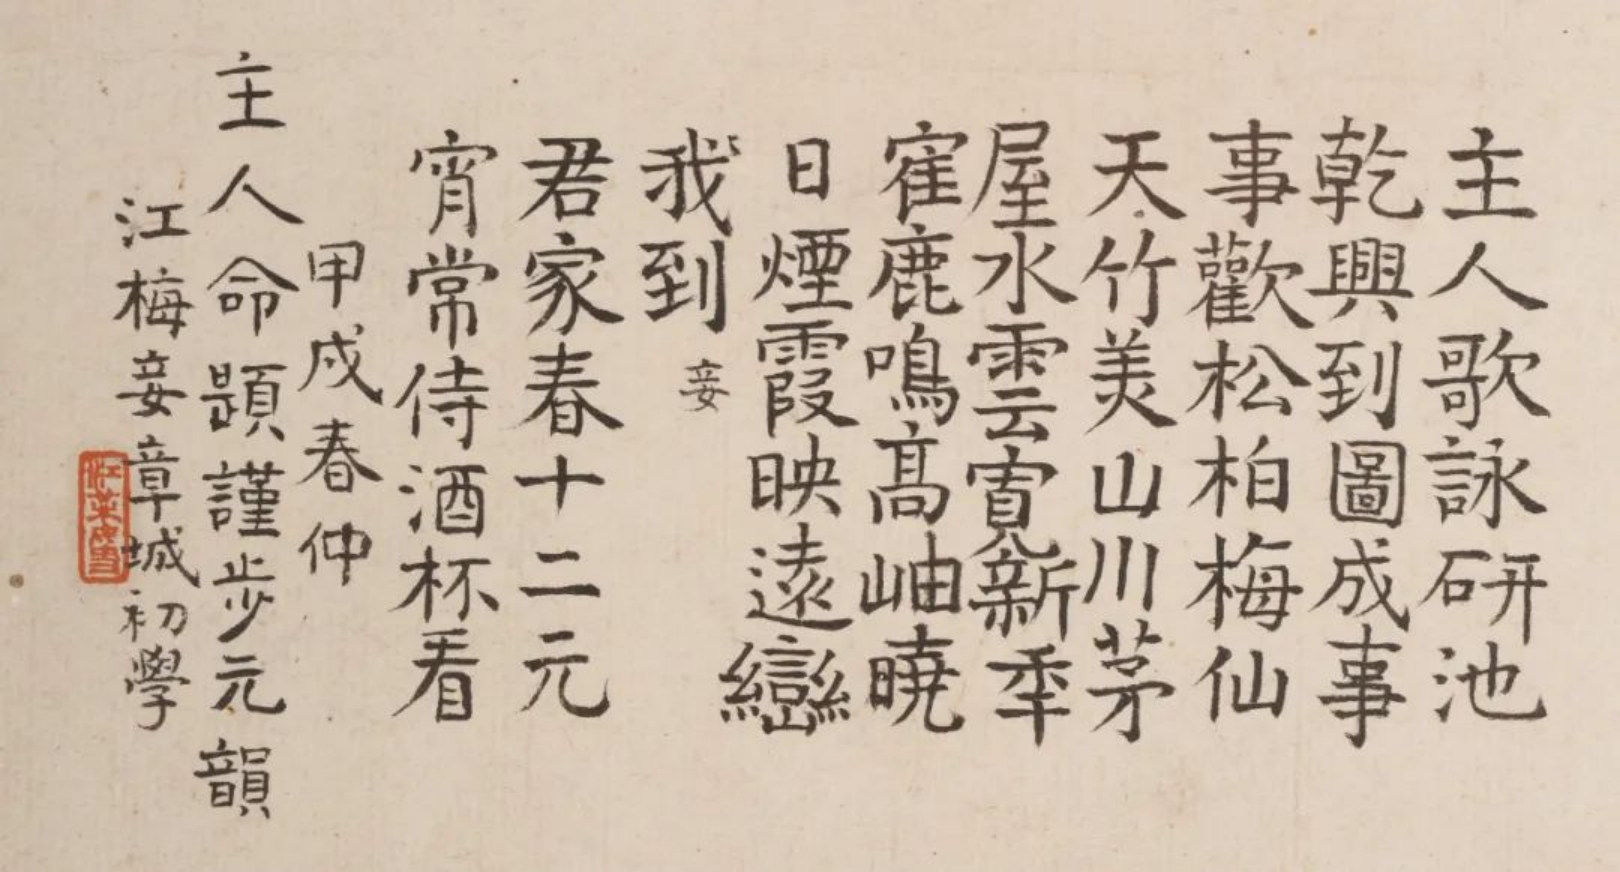 主人歌詠研池
乾興到圖成事
事歡松柏梅仙
天竹美山川茅
屋水雲寬新秊
寉鹿鳴高岫曉
日煙霞映遠巒
我到妾
君家春十二元
宵常侍酒杯看
甲戌春仲
主人命題謹步元韻
江梅妾章城初學